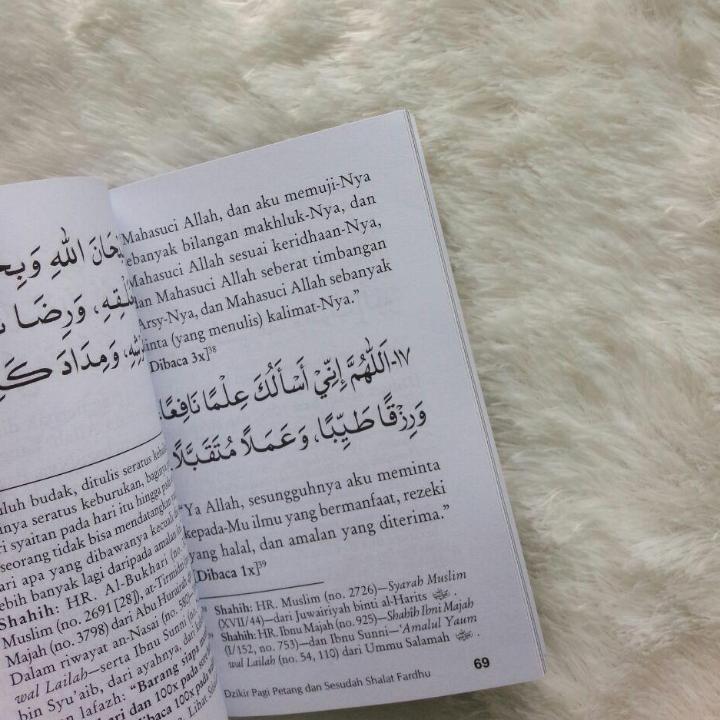 اللهِ
وَرِضَا
وَمِدَادَ
budak, ditulis seratus
seratus keburukan,
syaitan pada hari itu hingga
seorang tidak bisa mendatangkan
apa yang dibawanya kecuali
banyak lagi daripada amalan
Shahih: HR. Al-Bukhari (no.
Muslim (no. 2691 [28]), at-Tirmidzi
Majah (no. 3798) dari Abu Hurairah
Dalam riwayat an-Nasai (no. 580)—
wal Lailah—serta Ibnu Sunni (no.
bin Syu'aib, dari ayahnya, dari
lafazh: "Barang siapa
dan 100x pada sore
dibaca 100x pada
Lihat
Mahasuci Allah, dan aku memuji-Nya
sebanyak bilangan makhluk-Nya, dan
Mahasuci Allah sesuai keridhaan-Nya,
dan Mahasuci Allah seberat timbangan
'Arsy-Nya, dan Mahasuci Allah sebanyak
tinta (yang menulis) kalimat-Nya."
[Dibaca 3x]38
١٧- اَللّٰهُمَّ إِنِّيْ أَسْأَلُكَ عِلْمًا نَافِعًا،
وَرِزْقًا طَيِّبًا، وَعَمَلًا مُتَقَبَّلًا
"Ya Allah, sesungguhnya aku meminta
kepada-Mu ilmu yang bermanfaat, rezeki
yang halal, dan amalan yang diterima."
[Dibaca 1x]39
Shahih: HR. Muslim (no. 2726)—Syarah Muslim
(XVII/44)—dari Juwairiyah binti al-Harits
Shahih: HR. Ibnu Majah (no. 925)—Shahih Ibni Majah
(I/152, no. 753)—dan Ibnu Sunni—'Amalul Yaum
wal Lailah (no. 54, 110) dari Ummu Salamah
Dzikir Pagi Petang dan Sesudah Shalat Fardhu
69